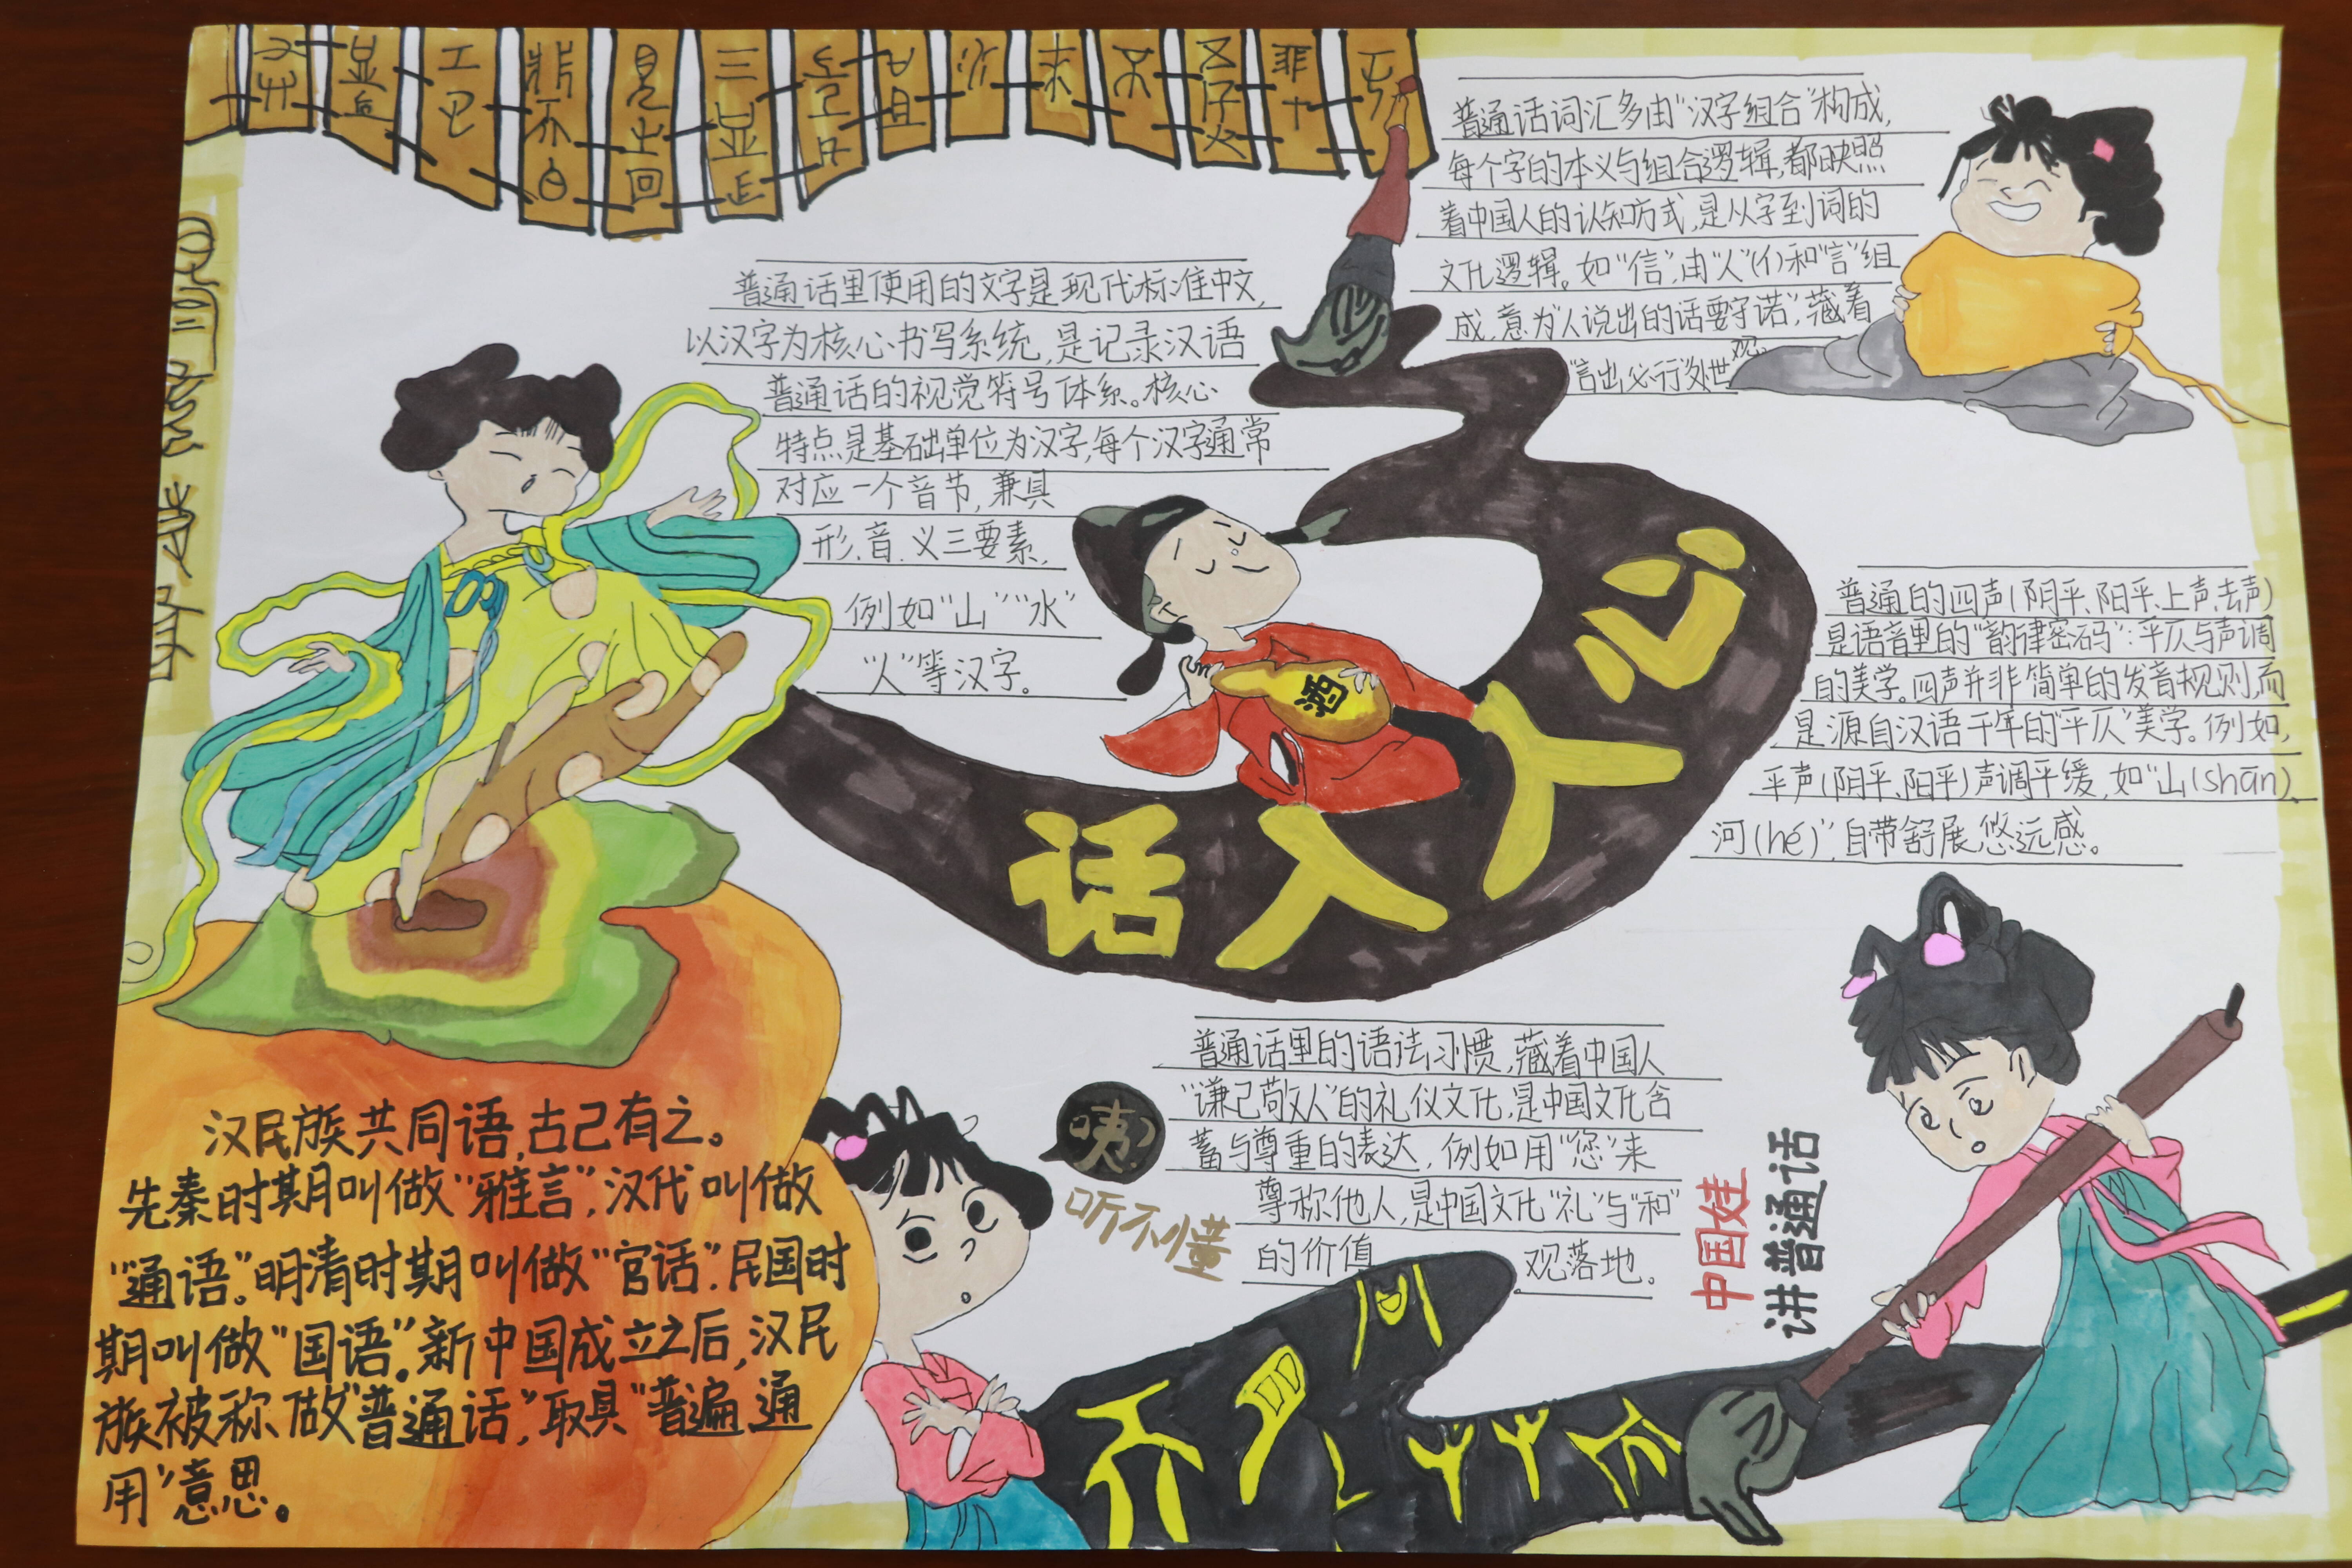 普通话词汇多由“汉字组合”构成,
每个字的本义与组合逻辑,都映照
着中国人的认知方式,是从字到词的
文化逻辑。如“信”,由“人”(亻)和“言”组
成,意为“人说出的话要守诺”,藏着
“言出必行”处世观。
普通话里使用的文字是现代标准中文,
以汉字为核心书写系统,是记录汉语
普通话的视觉符号体系。核心
特点是基础单位为汉字,每个汉字通常
对应一个音节,兼具
形、音、义三要素,
例如“山”“水”
“人”等汉字。
酒
话入人心
普通的四声(阴平、阳平、上声、去声)
是语音里的“韵律密码”:平仄与声调
的美学。四声并非简单的发音规则,而
是源自汉语千年的“平仄”美学。例如,
平声(阴平、阳平)声调平缓,如“山(shān)、
河(hé)”,自带舒展悠远感。
汉民族共同语,古已有之。
先秦时期叫做“雅言”,汉代叫做
“通语”。明清时期叫做“官话”.民国时
期叫做“国语”.新中国成立之后,汉民
族被称做“普通话”,取其“普遍通
用”意思。
咦?
听不懂
普通话里的语法习惯,藏着中国人
“谦己敬人”的礼仪文化,是中国文化含
蓄与尊重的表达,例如用“您”来
尊称他人,是中国文化“礼”与“和”
的价值观落地。
中国娃
讲普通话